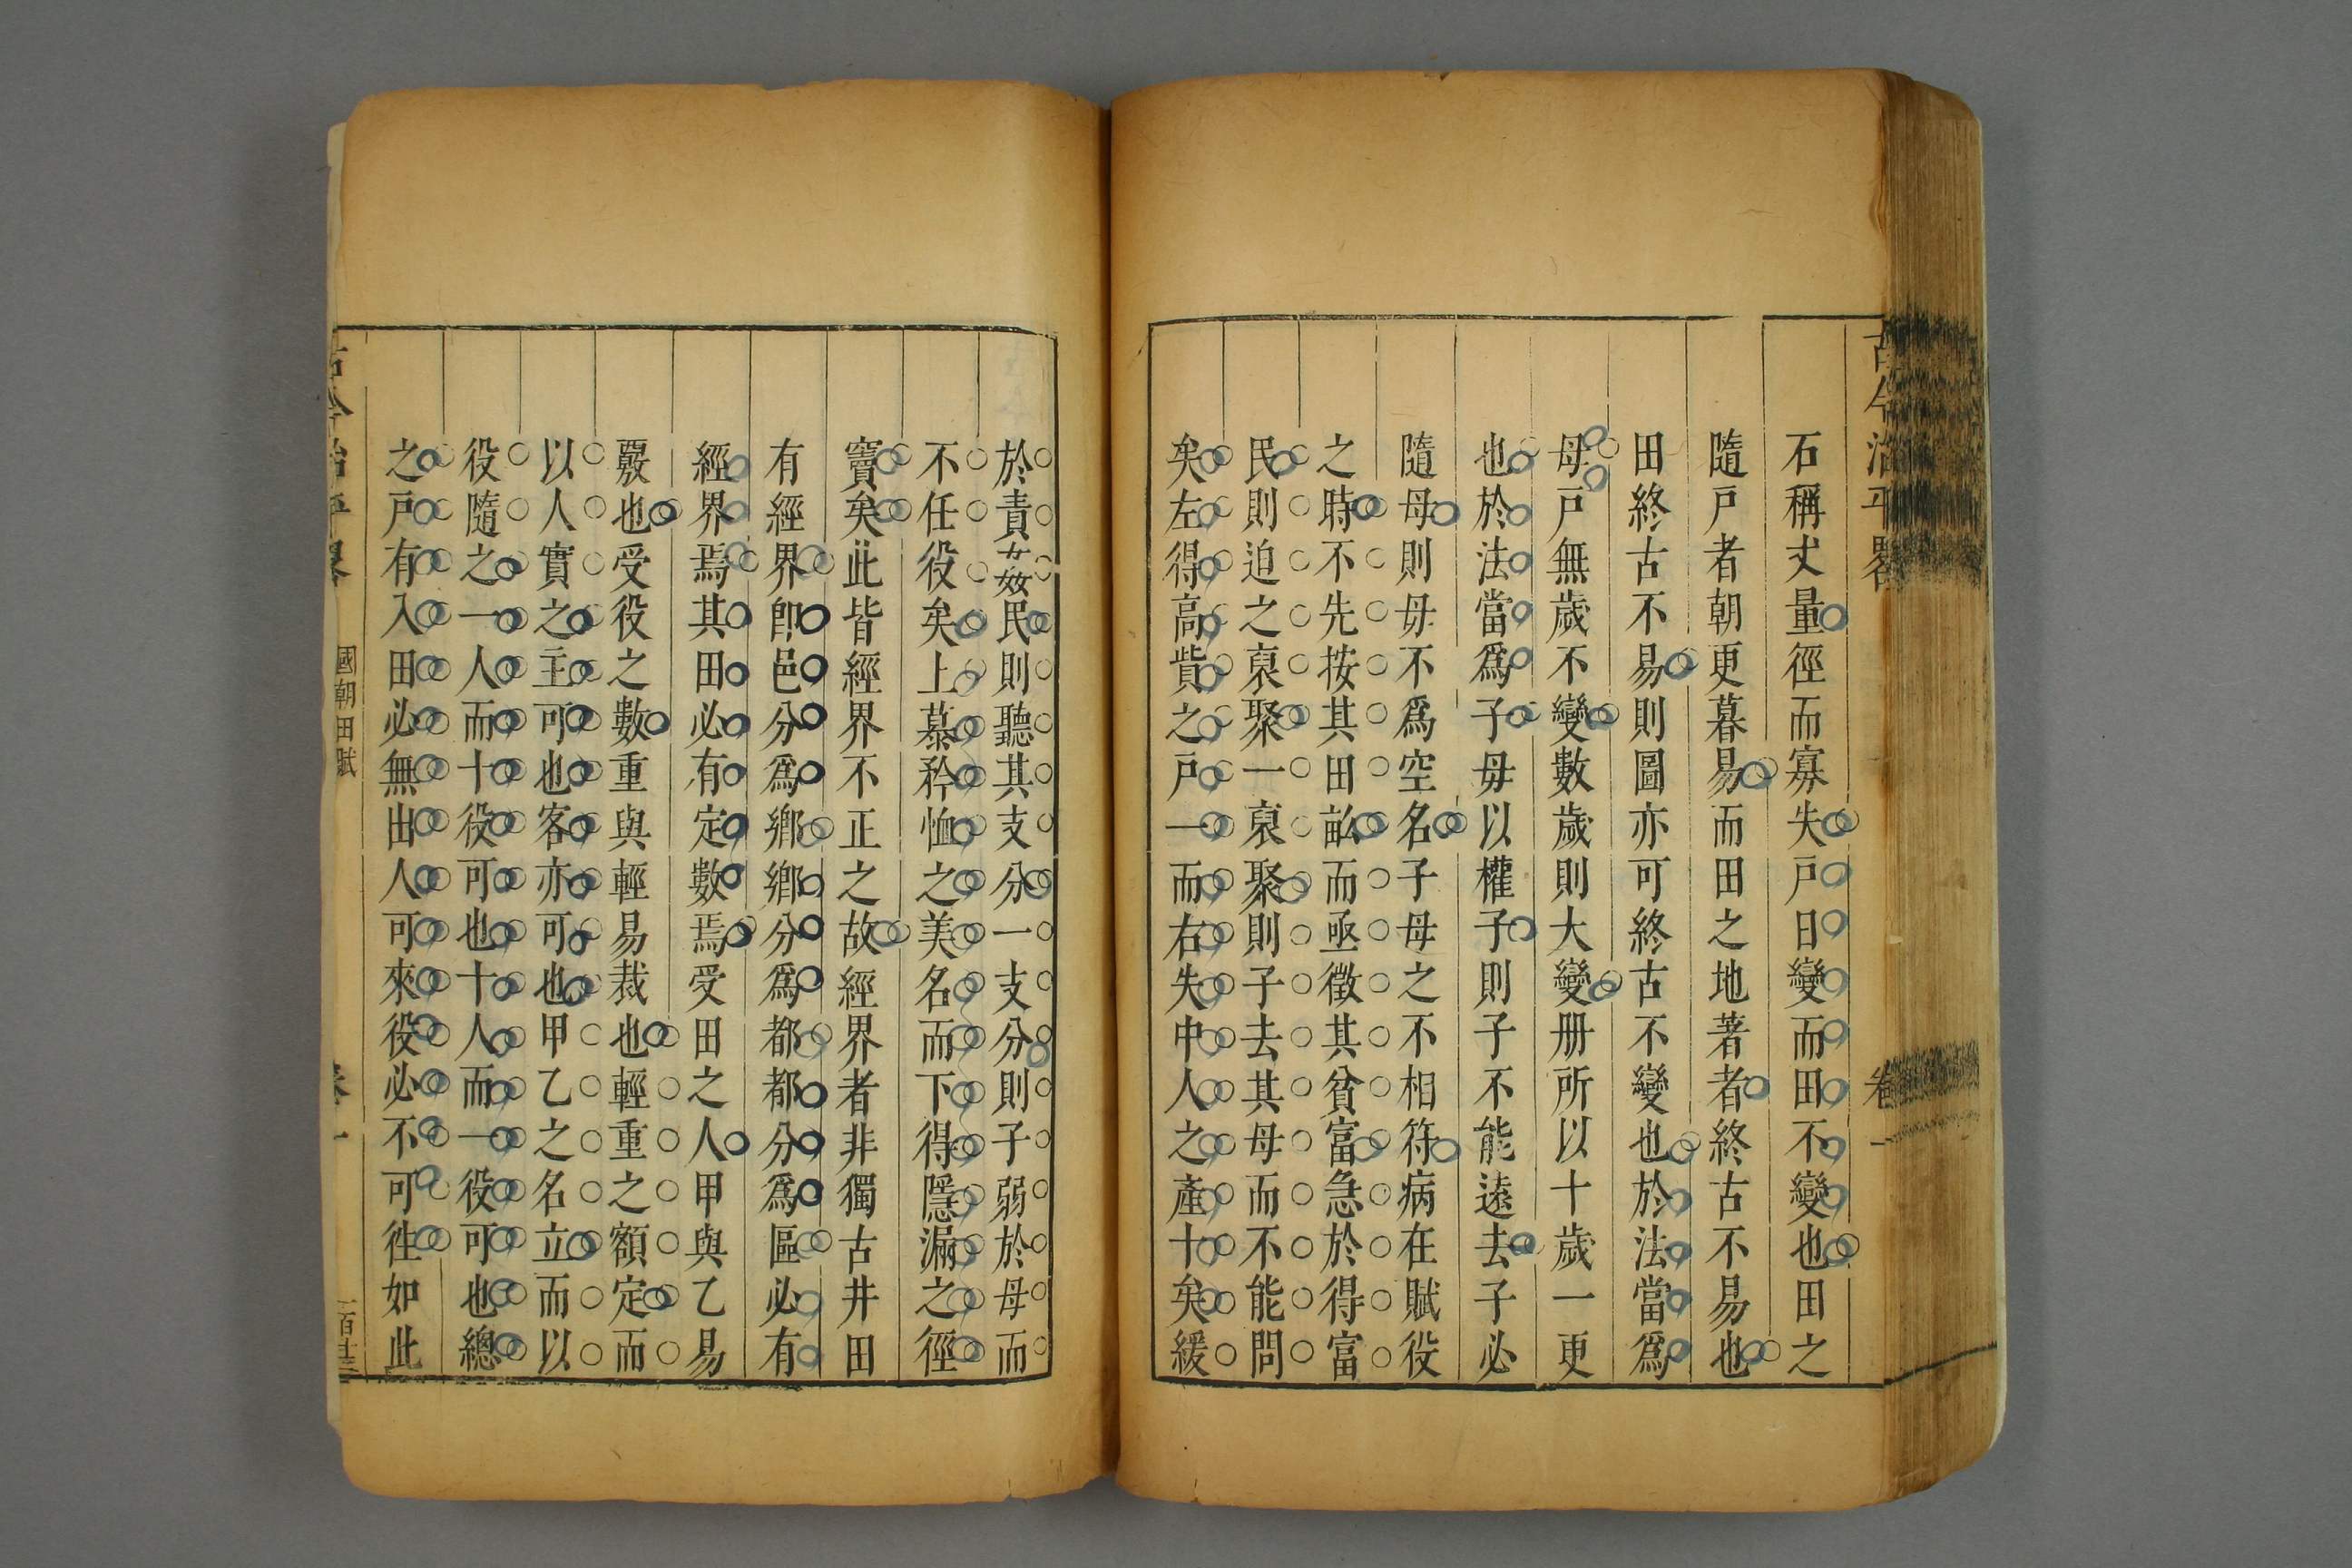 古今治平畧 卷一
石稱丈量徑而寡失戶日變而田不變也田之
隨戶者朝更暮易而田之地著者終古不易也
田終古不易則圖亦可終古不變也於法當爲
母戶無歲不變數歲則大變册所以十歲一更
也於法當爲子母以權子則子不能遠去子必
隨母則母不爲空名子母之不相符病在賦役
之時不先按其田畝而亟徵其貧富急於得富
民則迫之裒聚一裒聚則子去其母而不能問
矣左得高貲之戶一而右失中人之產十矣緩
於責姦民則聽其支分一支分則子弱於母而
不任役矣上慕矜恤之美名而下得隱漏之徑
竇矣此皆經界不正之故經界者非獨古井田
有經界卽邑分爲鄉鄉分爲都都分爲區必有
經界焉其田必有定數焉受田之人甲與乙易
覈也受役之數重與輕易裁也輕重之額定而
以人實之主可也客亦可也甲乙之名立而以
役隨之一人而十役可也十人而一役可也總
之戶有入田必無出人可來役必不可徃如此
古今治平畧 國朝田賦 卷一